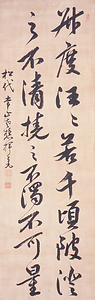 叔度汪々若千頃陂澄
之不清撓之不濁不可量
松代 象山